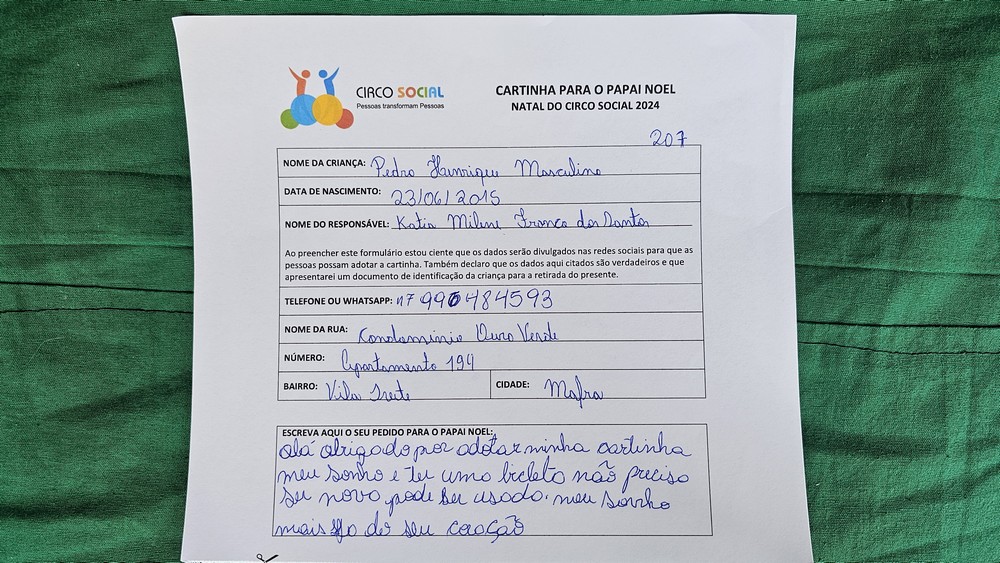 CIRCO SOCIAL
Pessoas transformam Pessoas
CARTINHA PARA O PAPAI NOEL
NATAL DO CIRCO SOCIAL 2024
207
NOME DA CRIANÇA: Pedro Henrique Masculino
DATA DE NASCIMENTO: 23/06/2015
NOME DO RESPONSÁVEL: Katia Milene Franco dos Santos
Ao preencher este formulário estou ciente que os dados serão divulgados nas redes sociais para que as
pessoas possam adotar a cartinha. Também declaro que os dados aqui citados são verdadeiros e que
apresentarei um documento de identificação da criança para a retirada do presente.
TELEFONE OU WHATSAPP: 47 990484593
NOME DA RUA: Condominio Ouro Verde
NÚMERO: Apartamento 194
BAIRRO: Vila Ivete CIDADE: Mafra
ESCREVA AQUI O SEU PEDIDO PARA O PAPAI NOEL:
olá obrigado por adotar minha cartinha
meu sonho e ter uma bicleto não preciso
ser novo pode ser usado. meu sonho
mais do seu coação